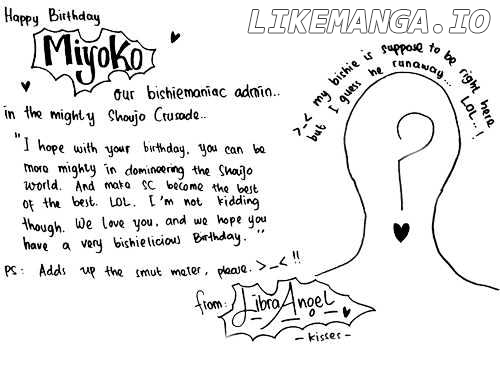 LIKEMANGA.IO
Happy Birthday
Miyoko
our bishiemaniac admin..
in the mighty Shoujo Crusade..
"I hope with your birthday, you can be
more mighty in domineering the Shoujo
world. And make SC become the best
of the best. LOL. I'm not kidding
though. We love you, and we hope you
have a very bishielicious Birthday."
PS: Adds up the smut meter, please. >_< !!
from: Libra Angel
- kisses -
>_< my bishie is suppose to be right here
but I guess he runaway... LOL..!
?